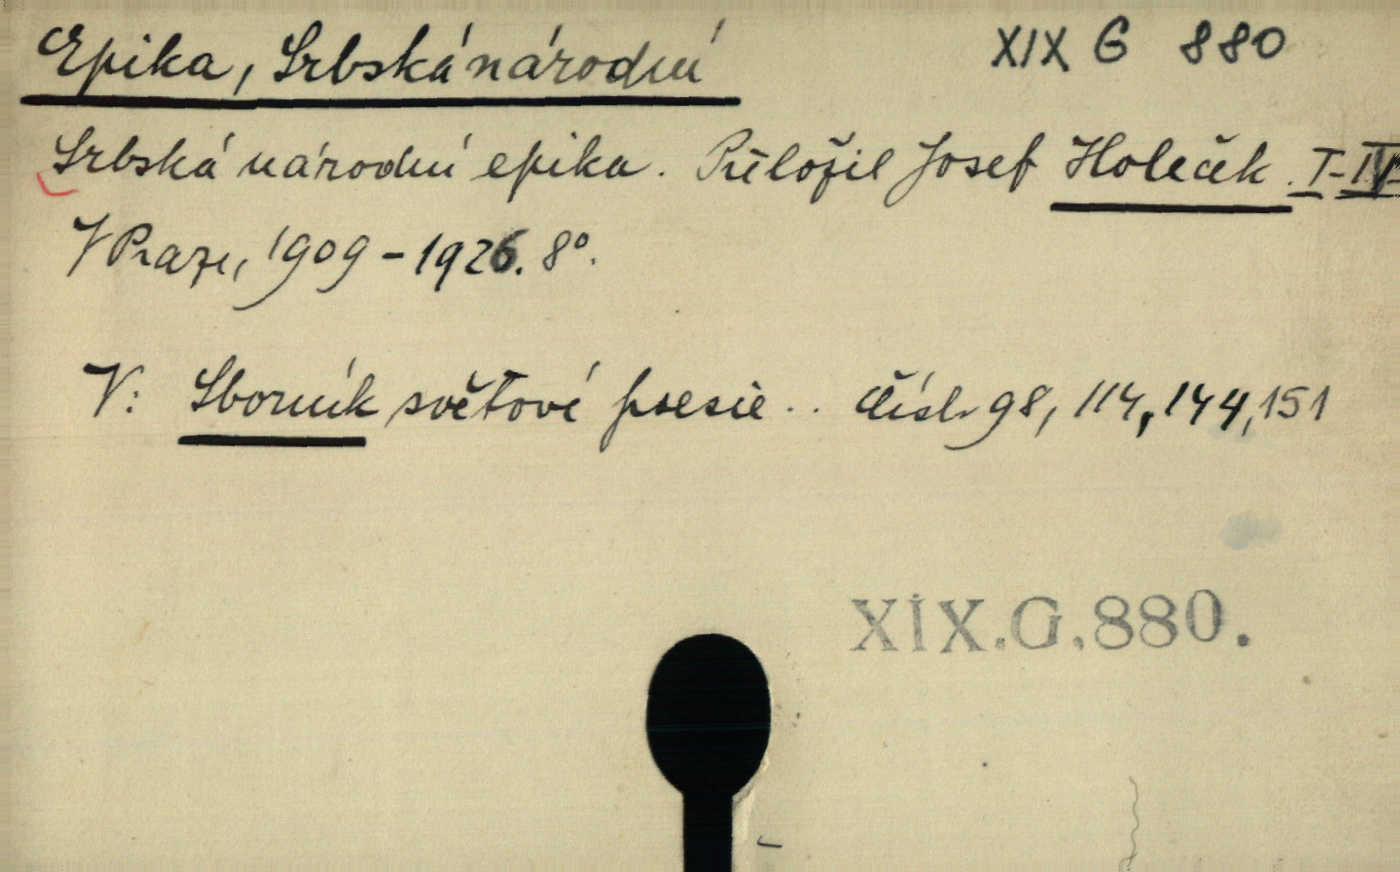 Epika, Srbská národní XIX G 880
Srbská národní epika. Přeložil Josef Holeček. I-IV
V Praze, 1909-1926. 8°.
V: Sborník světové poesie.. čísl. 98, 114, 144, 151
XIX.G.880.